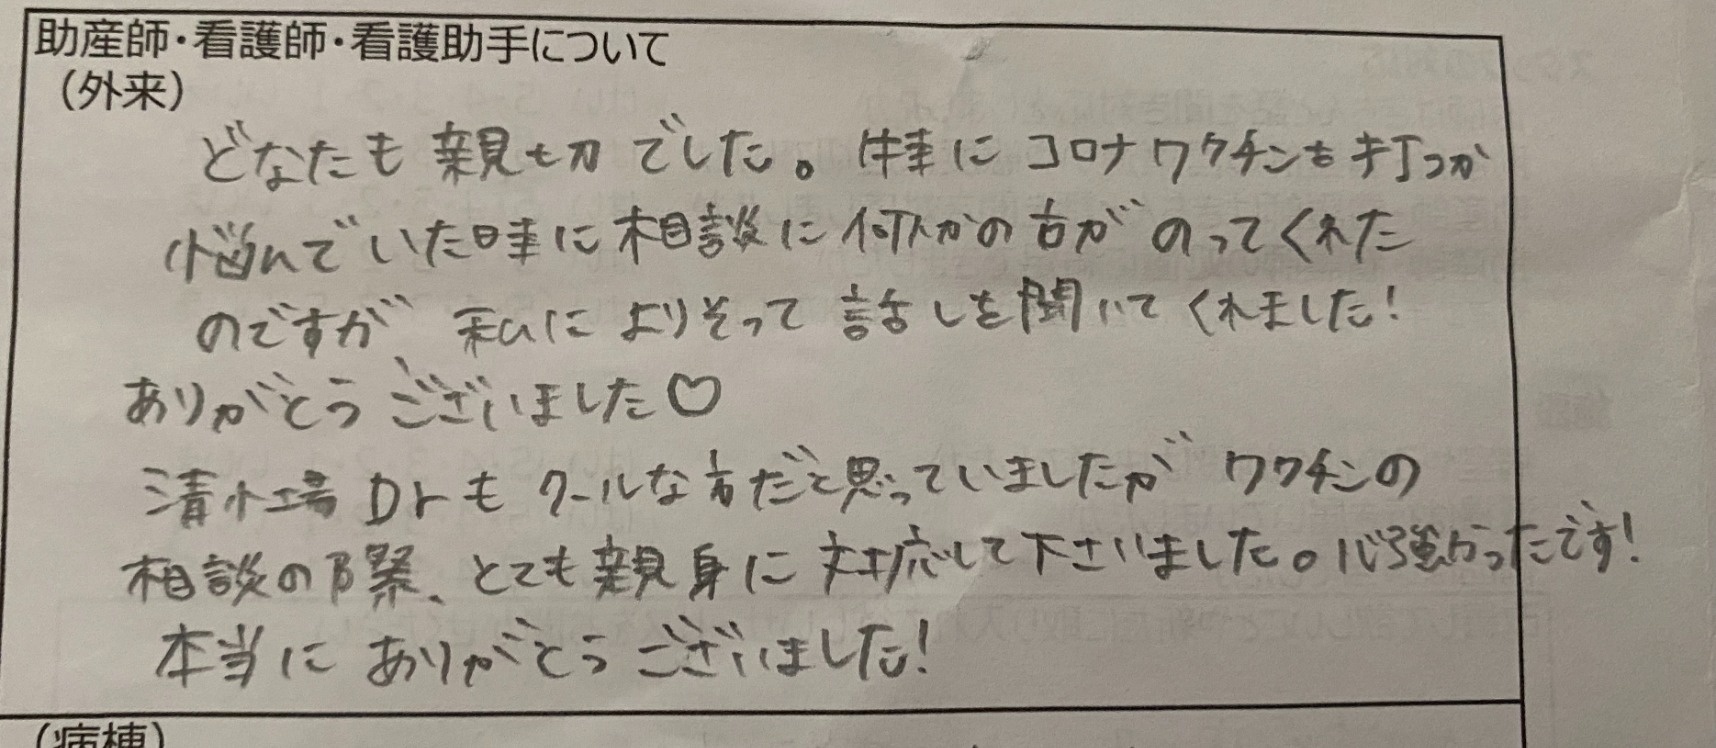 助産師・看護師・看護助手について
（外来）
どなたも親切でした。特に コロナワクチンを打つか
悩んでいた時に相談に何人かの方がのってくれた
のですが 私によりそって 話しを聞いてくれました！
ありがとうございました♡
清水場Drも クールな方だと思っていましたが ワクチンの
相談の際、とても親身に対応して下さいました。心強かったです！
本当に ありがとうございました！
（病棟）